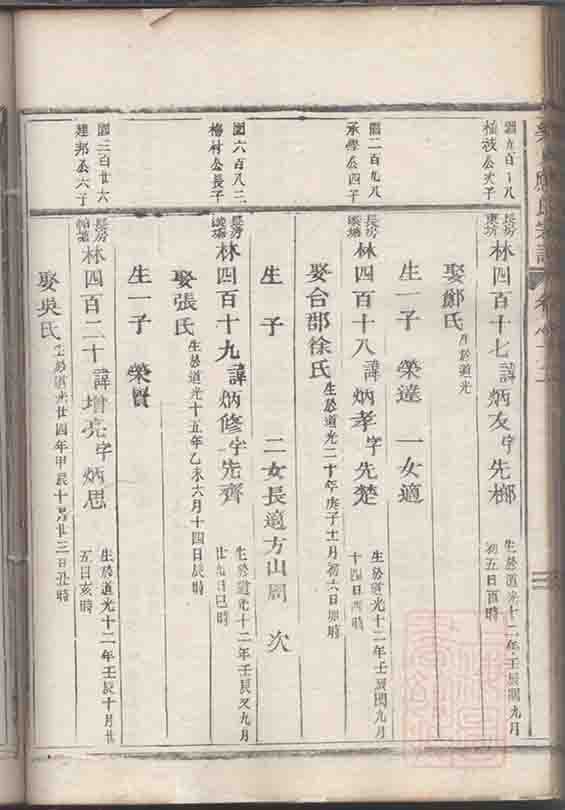 氏宗譜
園九百八
桂波公次子
長房
東坊
林四百十七諱炳友字先梛
生於道光十二年壬辰閏九月
初五日酉時
娶鄭氏
月於道光
生一子榮達一女適
園二百九八
承學公四子
長房
林四百十八諱炳孝字先楚
生於道光十二年壬辰閏九月
十四日酉時
娶台邵徐氏生於道光二十年庚子十一月初六日卯時
生子二女長適方山周次
園六百八三
梅村公長子
長房
林四百十九諱炳修字先齊
生於道光十二年壬辰又九月
廿九日巳時
娶張氏生於道光十五年乙未六月十四日辰時
生一子榮賢
園三百廿六
建邦公六子
長房
林四百二十諱增亮字炳思
生於道光十二年壬辰十月廿
五日亥時
娶吳氏生於道光廿四年甲辰十月廿三日丑時